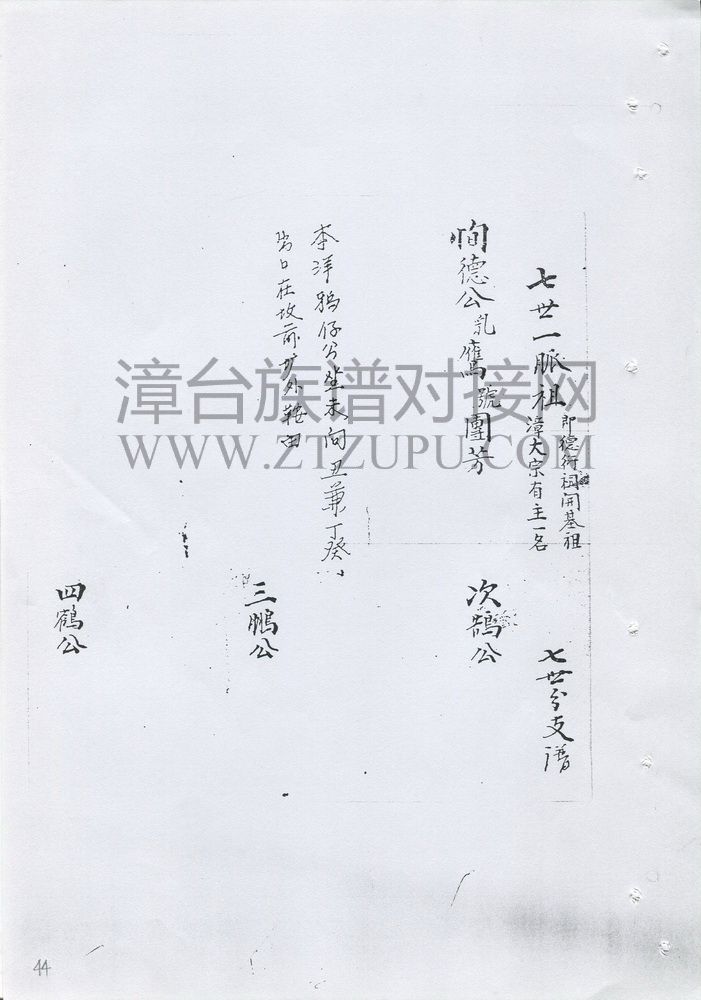 七世一脈祖
即德行祠開基祖
漳大宗有主一名
恂德公乳鷹號團芳
本洋鴉仔穴坐未向丑兼丁癸
在坟前
七世分支譜
次鵠公
三鵬公
四鶴公
漳台族谱对接网
WWW.ZTZUPU.COM
44